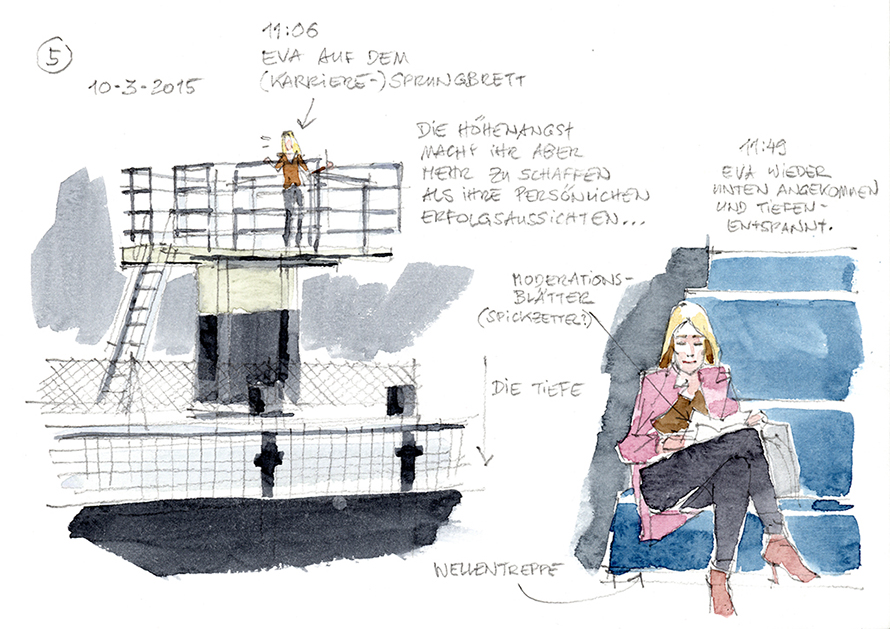 5
10-3-2015
11:06
EVA AUF DEM
(KARRIERE-)SPRUNGBRETT
DIE HÖHENANGST
MACHT IHR ABER
MEHR ZU SCHAFFEN
ALS IHRE PERSÖNLICHEN
ERFOLGSAUSSICHTEN...
11:49
EVA WIEDER
UNTEN ANGEKOMMEN
UND TIEFEN-
ENTSPANNT.
MODERATIONS-
BLÄTTER
(SPICKZETTEL?)
DIE TIEFE
WELLENTREPPE